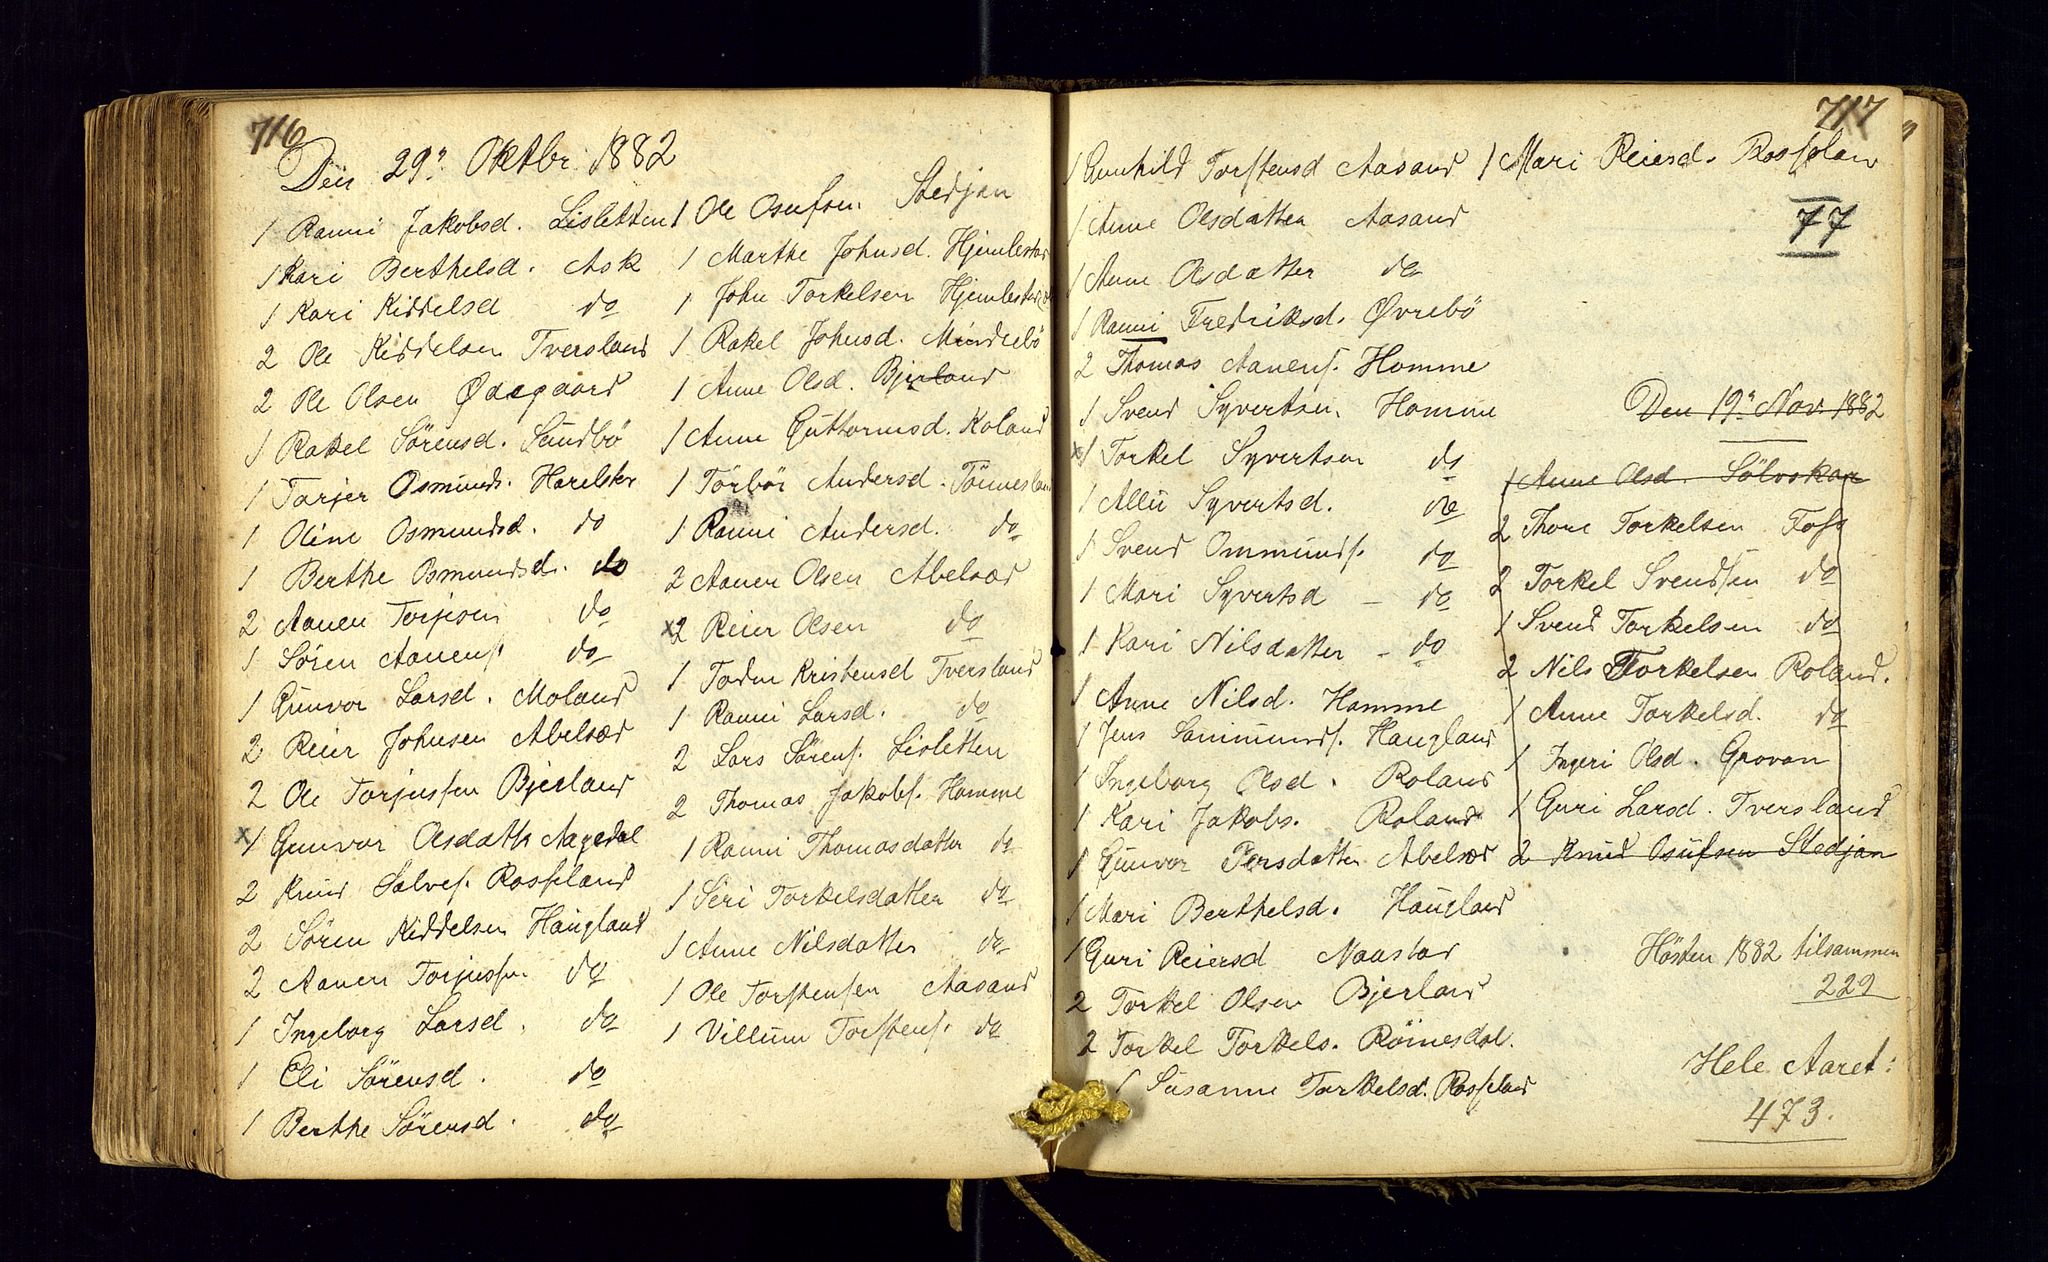 716
Den 29? Oktbr 1882
1 Ranni Jakobsd. Lisletten
1 Kari Berthelsd. Ask
1 Kari Kiddelsd do
2 Ole Kiddelsen Tversland
2 Ole Olsen Ødegaard
1 Rakel Sörensd. Sundbö
1 Tarjer Osmunds. Harelster
1 Oline Osmundsd. do
1 Berthe Osmundsd. do
2 Aanen Torjesen do
1 Sören Aanens. do
1 Gunvor Larsd. Moland
2 Reier Johnsen Abelsæd
2 Ole Torjussen Bjerland
x1 Gunvor Olsdatter Aagedal
2 Knud Salves. Rosseland
2 Sören Kiddelsen Haugland
2 Aanen Torjussen do
1 Ingeborg Larsd. do
1 Eli Sörensd. do
1 Berthe Sörensd. do
1 Ole Osufsen Stedjan
1 Marthe Johnsd. Hjemlestad
1 John Torkelsen Hjemlestad
1 Rakel Johnsd. Mindrebö
1 Anne Olsd. Bjerland
1 Anne Guttormsd. Roland
1 Torbör Andersd. Tönnesland
1 Ranni Andersd. do
2 Aanen Olsen Abelsæd
x2 Reier Olsen do
1 Kristensd Tversland
1 Ranni Larsd. do
2 Lars Sörens. Lisletten
2 Thomas Jakobs. Homme
1 Ranni Thomasdatter do
1 Seri Torkelsdatter do
1 Anne Nilsdatter do
1 Ole Torstensen Aasand
1 Villum Torstens. do
717
1 Gunhild Torstensd Aasand
1 Anne Olsdatter Aasand
1 Anne Olsdatter do
1 Ranni Fredriksd. Øvrebö
2 Thomas Aanens. Homme
1 Svend Syvertsen. Homme
x1 Torkel Syvertsen do
1 Allu Syvertsd. do
1 Svend Ommunds. do
1 Mari Syvertsd - do
1 Kari Nilsdatter - do
1 Anne Nilsd. Homme
1 Jens Sammunds. Haugland
1 Ingeborg Olsd. Roland
1 Kari Jakobs. Roland
1 Gunvor Persdatter Abelsæd
1 Mari Berthelsd. Haugland
1 Guri Reiersd Naastad
2 Torkel Olsen Bjerland
2 Torkel Torkels. Römesdal.
1 Susanne Torkelsd. Rosseland
1 Mari Reiersd. Rosseland
77
Den 19? Nov. 1882
1 Anne Olsd. Sölvskar
2 Thore Torkelsen Foss
2 Torkel Svendsen do
1 Svend Torkelsen do
2 Nils Torkelsen Roland.
1 Anne Torkelsd. do
1 Ingeri Olsd. Grovan
1 Guri Larsd. Tversland
2 Knud Osufsen Stedjan
Hösten 1882 tilsammen
229
Hele Aaret:
473.